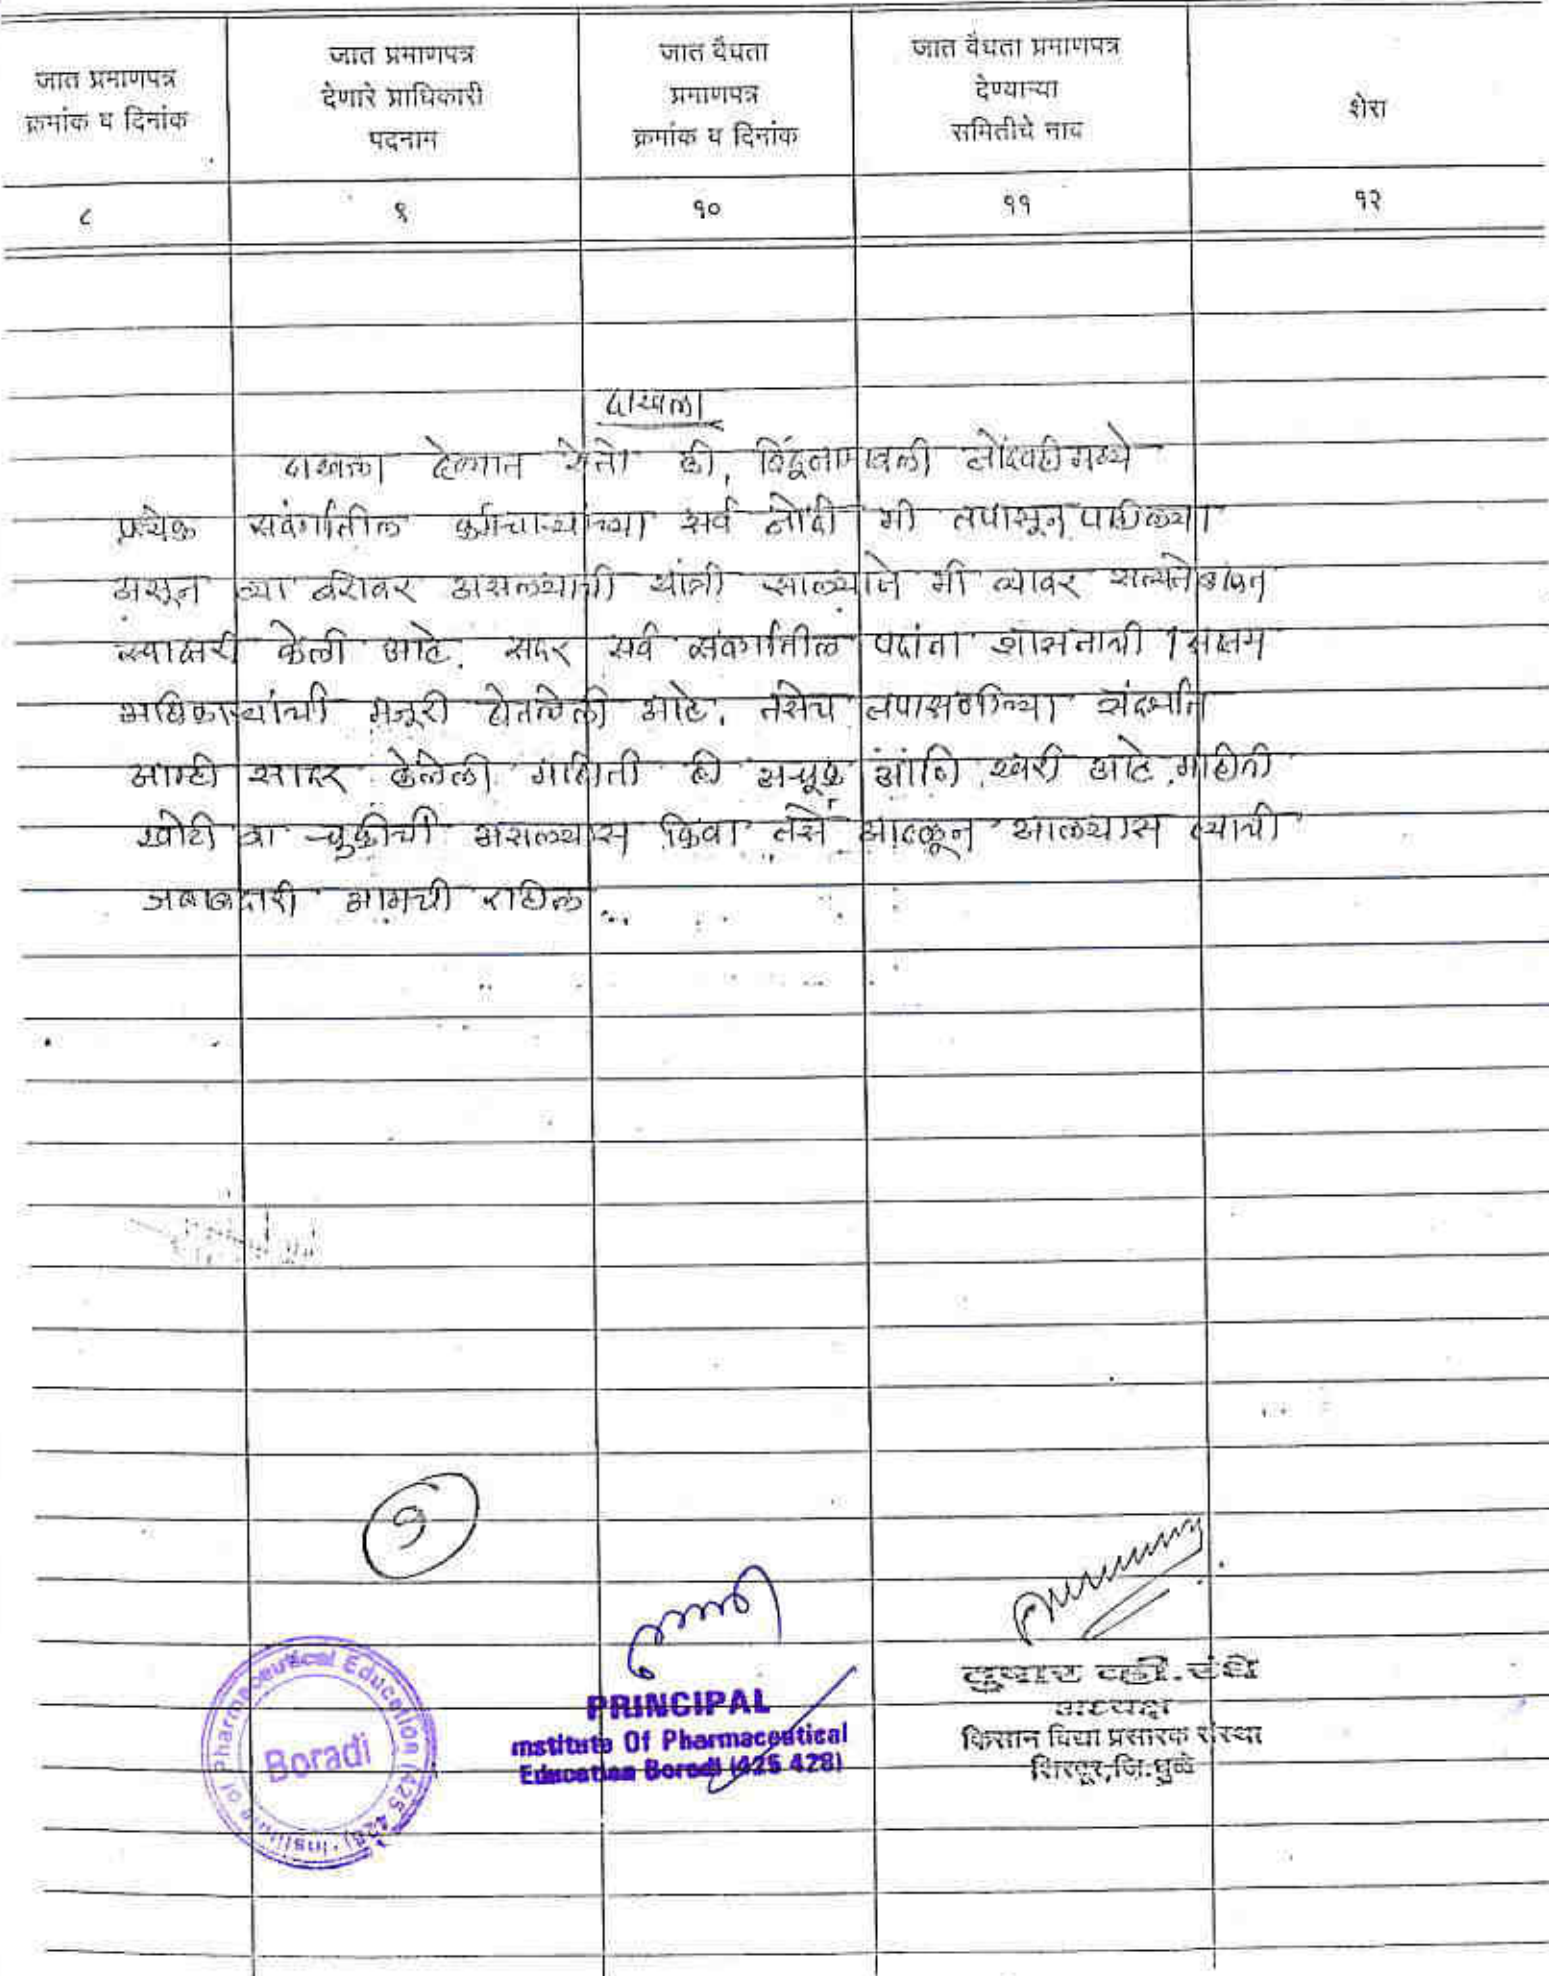 जात प्रमाणपत्र
क्रमांक व दिनांक
जात प्रमाणपत्र
देणारे प्राधिकारी
पदनाम
जात वैधता
प्रमाणपत्र
क्रमांक व दिनांक
जात वैधता प्रमाणपत्र
देण्याऱ्या
समितीचे नाव
शेरा
८ ९ १० ११ १२
दाखला
दाखला देण्यात येतो की, बिंदूनामावली नोंदवहीमध्ये
प्रत्येक संवर्गातील कर्मचाऱ्यांच्या सर्व नोंदी मी तपासून पाहिल्या
असून त्या बरोबर असल्याची खात्री झाल्याने मी त्यावर सत्यतेबाबत
स्वाक्षरी केली आहे. सदर सर्व संवर्गातील पदांना शासनाची / सक्षम
अधिकाऱ्यांची मंजूरी घेतलेली आहे. तसेच तपासणीच्या संदर्भात
आम्ही सादर केलेली माहिती ही अचूक आणि खरी आहे. माहिती
खोटी वा चुकीची असल्यास किंवा तसे आढळून आल्यास त्याची
जबाबदारी आमची राहील
७
Institute of Pharmaceutical Education (425 428)
Boradi
PRINCIPAL
nstitute Of Pharmaceutical
Education Boradi (425 428)
तुषार व्ही. रंधे
अध्यक्ष
किसान विद्या प्रसारक संस्था
शिरपूर, जि. धुळे